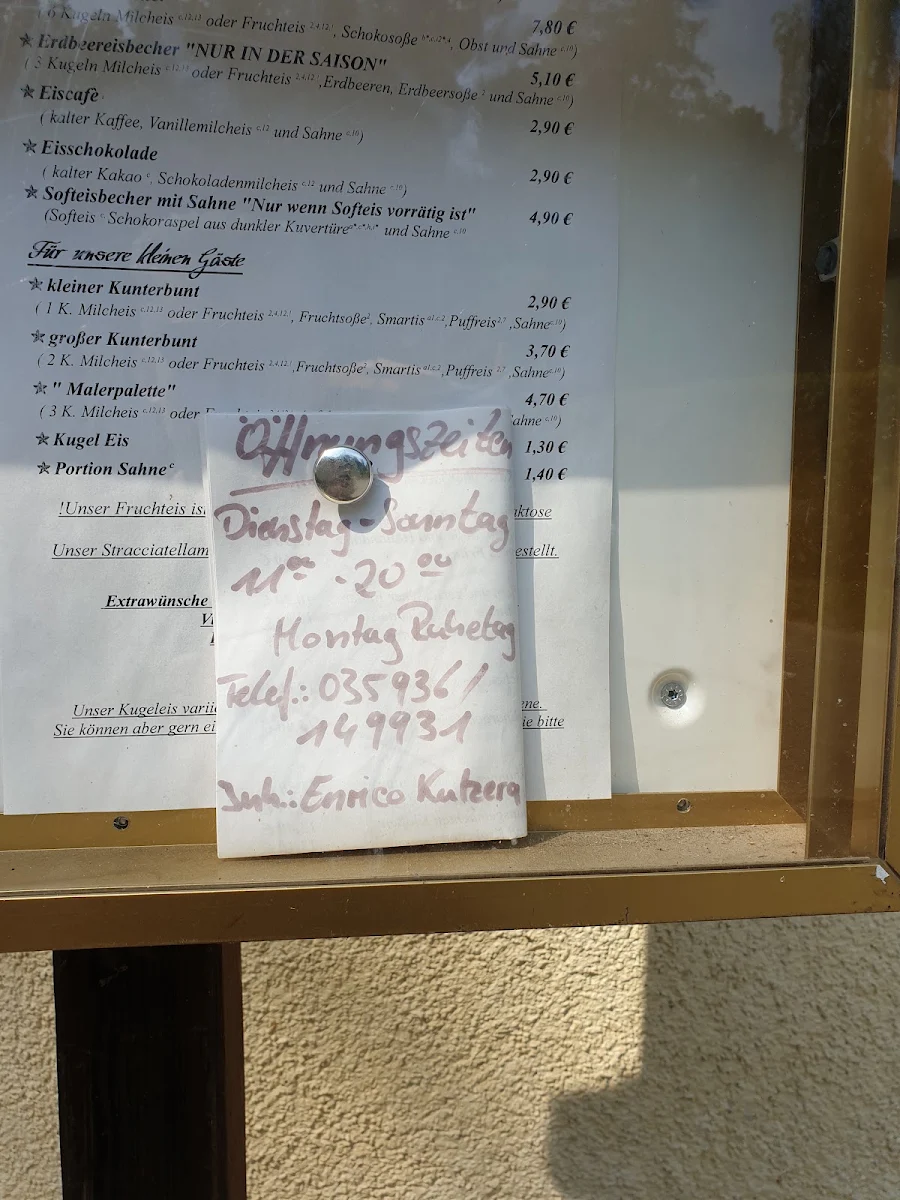 ( 6 Kugeln Milcheis c,12,13 oder Fruchteis 2,4,12,!, Schokosoße , Obst und Sahne c,10)
7,80 €
✯ Erdbeereisbecher "NUR IN DER SAISON"
5,10 €
( 3 Kugeln Milcheis oder Fruchteis 2,4,12 ,Erdbeeren, Erdbeersoße 2 und Sahne c,10)
✯ Eiscafè
2,90 €
( kalter Kaffee, Vanillemilcheis c,12 und Sahne c,10)
✯ Eisschokolade
2,90 €
( kalter Kakao c, Schokoladenmilcheis c,12 und Sahne c,10)
✯ Softeisbecher mit Sahne "Nur wenn Softeis vorrätig ist"
4,90 €
(Softeis c Schokoraspel aus dunkler Kuvertüre und Sahne c,10
Für unsere kleinen Gäste
✯ kleiner Kunterbunt
2,90 €
( 1 K. Milcheis c,12,13 oder Fruchteis 2,4,12,!, Fruchtsoße2, Smartis a1,c,2,Puffreis2,7 ,Sahnec,10)
✯ großer Kunterbunt
3,70 €
( 2 K. Milcheis c,12,13 oder Fruchteis 2,4,12,! ,Fruchtsoße2, Smartis a1,c,2,Puffreis 2,7 ,Sahnec,10)
✯ " Malerpalette"
4,70 €
( 3 K. Milcheis c,12,13 oder ahne c,10)
✯ Kugel Eis
1,30 €
✯ Portion Sahne c
1,40 €
!Unser Fruchteis is ktose
Unser Stracciatellam estellt.
Extrawünsche
Unser Kugeleis varii ene.
Sie können aber gern ei ie bitte
Öffnungszeiten
Dienstag-Sonntag
11 00 - 20 00
Montag Ruhetag
Telef.: 035936/
149931
Inh.: Enrico Kutzera